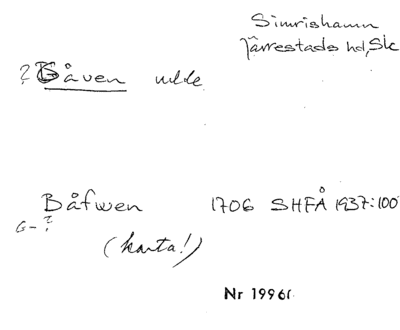 Simrishamn
Järrestads hd, Sk
? Gåven udde
Båfwen 1706 SHFÅ 1937:100
G-?
(karta!)
Nr 1996